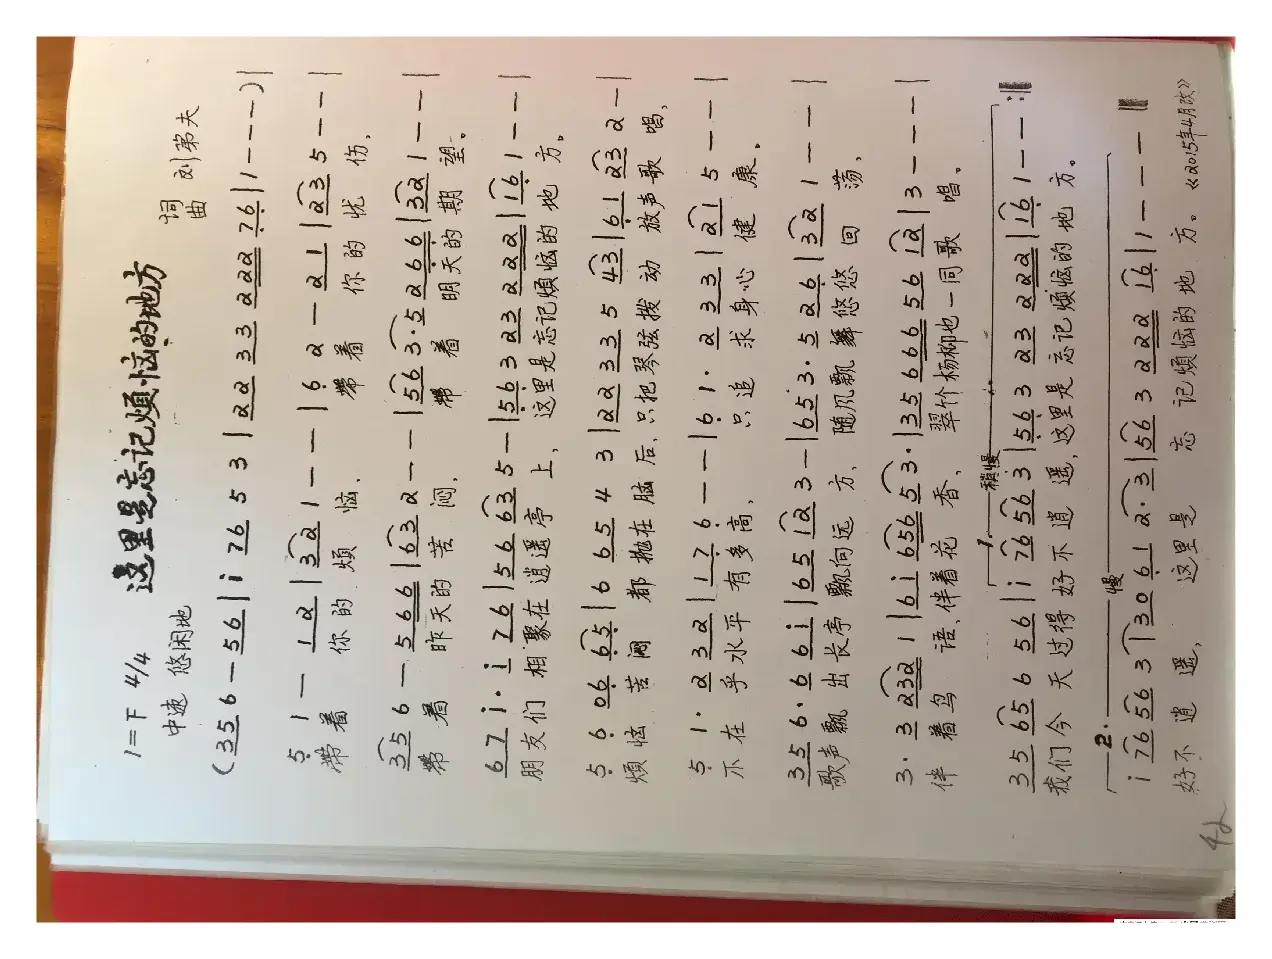 这里是忘记烦恼的地方
1=F 4/4
中速 悠闲地
词曲 刘弟夫
(3 5 6 — 5 6 | i 7 6 5 3 | 2 2 3 3 2 2 2 7 6 | 1 — — — ) |
5 1 — 1 2 | 3 2 1 — — | 6 2 — 2 1 | 2 3 5 — — |
带着 你的烦恼、 带着 你的忧伤,
3 5 6 — 5 6 6 | 6 3 2 — — | 5 6 3 · 5 2 6 6 | 3 2 1 — — |
带着 昨天的苦闷, 带着 明天的期望。
6 7 i · i 7 6 | 5 6 6 3 5 — | 5 6 3 2 3 2 2 2 | 1 6 1 — — |
朋友们 相聚在逍遥亭上, 这里是忘记烦恼的地方。
5 6 0 6 6 5 | 6 6 5 4 3 | 2 2 3 3 5 4 3 | 6 1 2 3 2 — |
烦恼苦闷都抛在脑后,只把琴弦拨动放声歌唱,
5 1 · 2 3 2 | 1 7 6 — — | 6 1 · 2 3 3 | 2 1 5 — — |
不在乎水平有多高, 只追求身心健康。
3 5 6 · 6 6 i | 6 5 5 1 2 3 — | 6 5 3 · 5 2 6 | 3 2 1 — — |
歌声飘出长亭飘向远方, 随风飘舞悠悠回荡,
3 · 3 2 3 2 1 | 6 i 6 5 6 5 3 · | 3 5 6 6 6 5 6 1 2 | 3 — — — |
伴着鸟语、伴着花香、 翠竹杨柳也一同歌唱。
1. 稍慢
3 5 6 5 6 5 6 | i 7 6 5 6 3 | 5 6 3 2 3 2 2 2 | 1 6 1 — — :‖
我们今天过得好不逍遥,这里是忘记烦恼的地方。
2. 慢
i 7 6 5 6 3 | 3 0 6 1 2 · 3 | 5 6 3 2 2 2 1 6 | 1 — — — ‖
好不逍遥, 这里是忘记烦恼的地方。《2015年4月改》
42